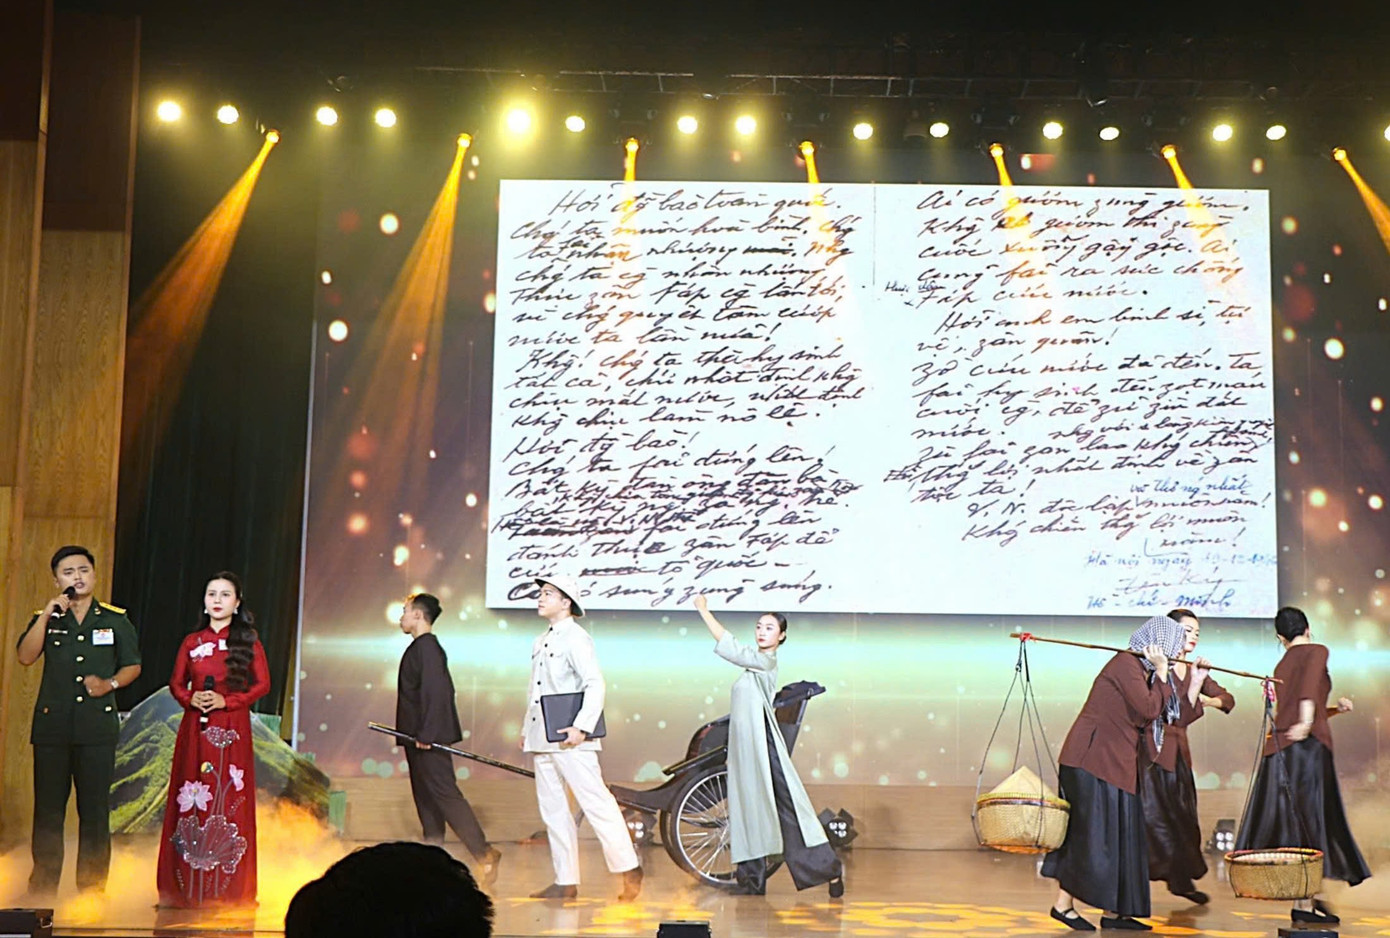 Hỡi đg bào toàn quốc.
Chg ta muốn hoà bình. Chg
ta fải nhân nhượng. Nhg
chg ta cg nhân nhượng,
Thực zân Fáp cg lấn tới,
vì chg quyết tâm cướp
nước ta lần nữa!
Khg! chg ta thà hy sinh
tất cả, chứ nhất định khg
chịu mất nước, nhất định
khg chịu làm nô lệ.
Hỡi đg bào!
Chg ta fải đứng lên!
Bất kỳ đàn ông đàn bà
bất kỳ ng zà ng trẻ.
fải đứng lên
đánh thực zân Fáp để
cứu tổ quốc
Ai có súng zùng súng.
Ai có gươm zùng gươm,
Khg có gươm thì zùng
cuốc xuổng gậy gộc. Ai
cũng fải ra sức chống
Fáp cứu nước.
Hỡi anh em binh sĩ, tự
vệ, zân quân!
Zờ cứu nước đã đến. Ta
fải hy sinh đến zọt máu
cuối cg, để zữ zìn đất
nước.
Zù fải zan lao khg chiến
thg lợi nhất định về zân
tộc ta!
và thống nhất
V. N. độc lập muôn năm!
Khg chiến thg lợi muôn
năm!
Hà nội ngày 19-12-1946
Hồ-chí-Minh